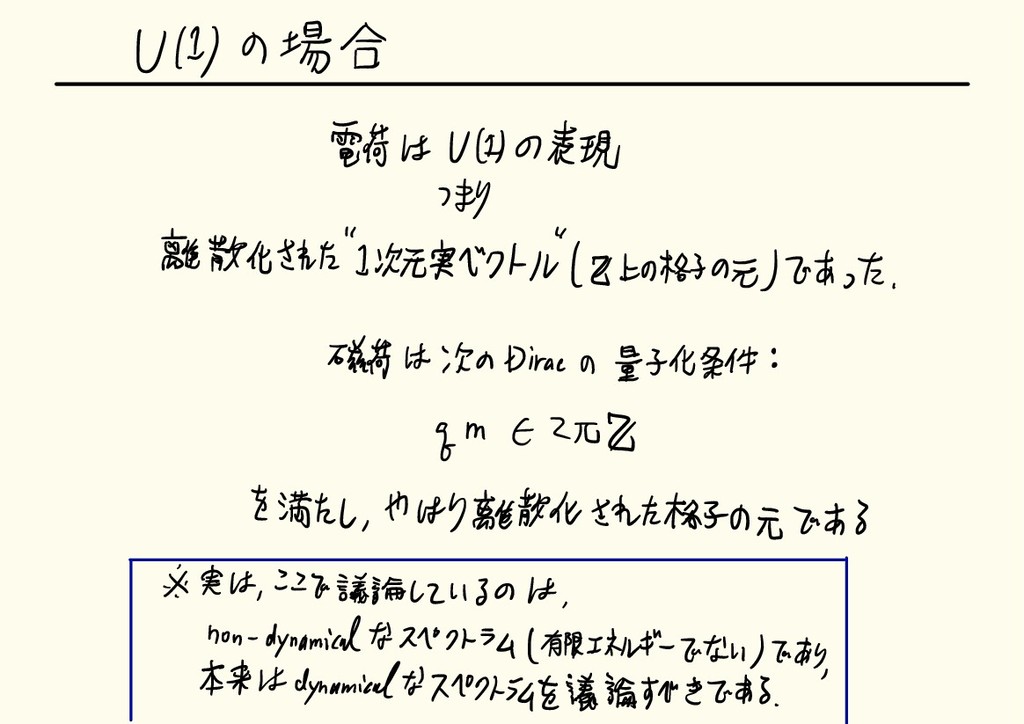 U(1)の場合
電荷は U(1)の表現
つまり
離散化された“1次元実ベクトル“(ℤ上の格子の元)であった.
磁荷は次のDiracの量子化条件:
qm ∈ 2πℤ
を満たし,やはり離散化された格子の元である
※実は,ここで議論しているのは,
non-dynamicalなスペクトラム(有限エネルギーでない)であり,
本来はdynamicalなスペクトラムを議論すべきである.